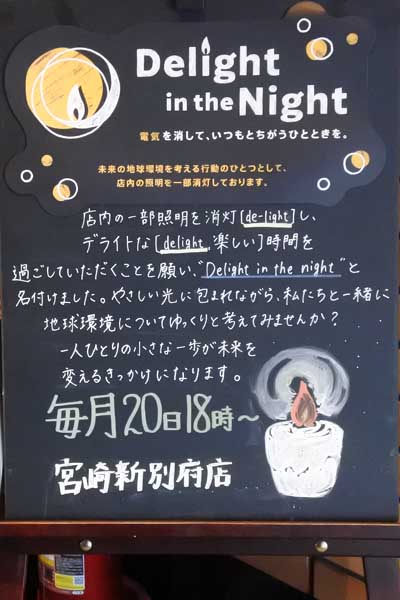 Delight
in the Night
電気を消して、いつもとちがうひとときを。
未来の地球環境を考える行動のひとつとして、
店内の照明を一部消灯しております。
店内の一部照明を消灯[de-light]し、
デライトな[delight.楽しい]時間を
過ごしていただくことを願い、“Delight in the night”と
名付けました。やさしい光に包まれながら、私たちと一緒に
地球環境についてゆっくりと考えてみませんか?
一人ひとりの小さな一歩が未来を
変えるきっかけになります。
毎月20日18時～
宮崎新別府店